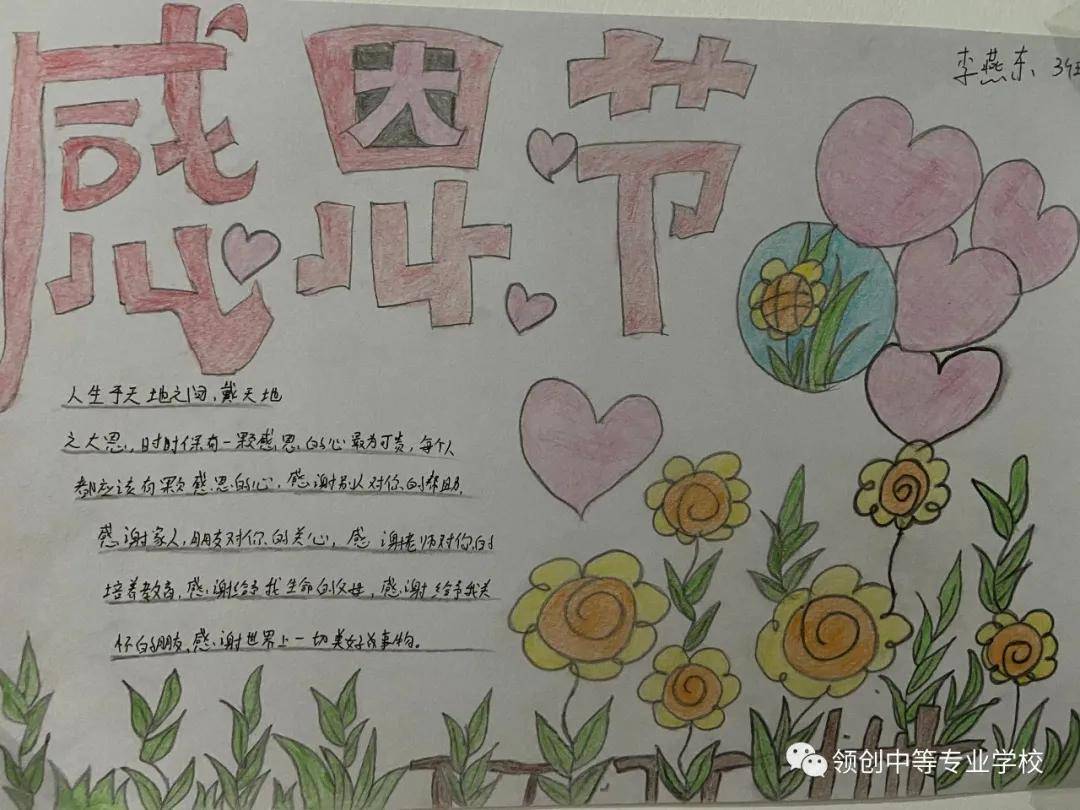 感恩节
李燕东 34班
人生于天地之间,戴天地
之大恩,时时保有一颗感恩的心最为可贵,每个人
都应该有颗感恩的心,感谢别人对你的帮助,
感谢家人,朋友对你的关心,感谢老师对你的
培养教育,感谢给予我生命的父母,感谢给予我关
怀的朋友,感谢世界上一切美好的事物。
领创中等专业学校